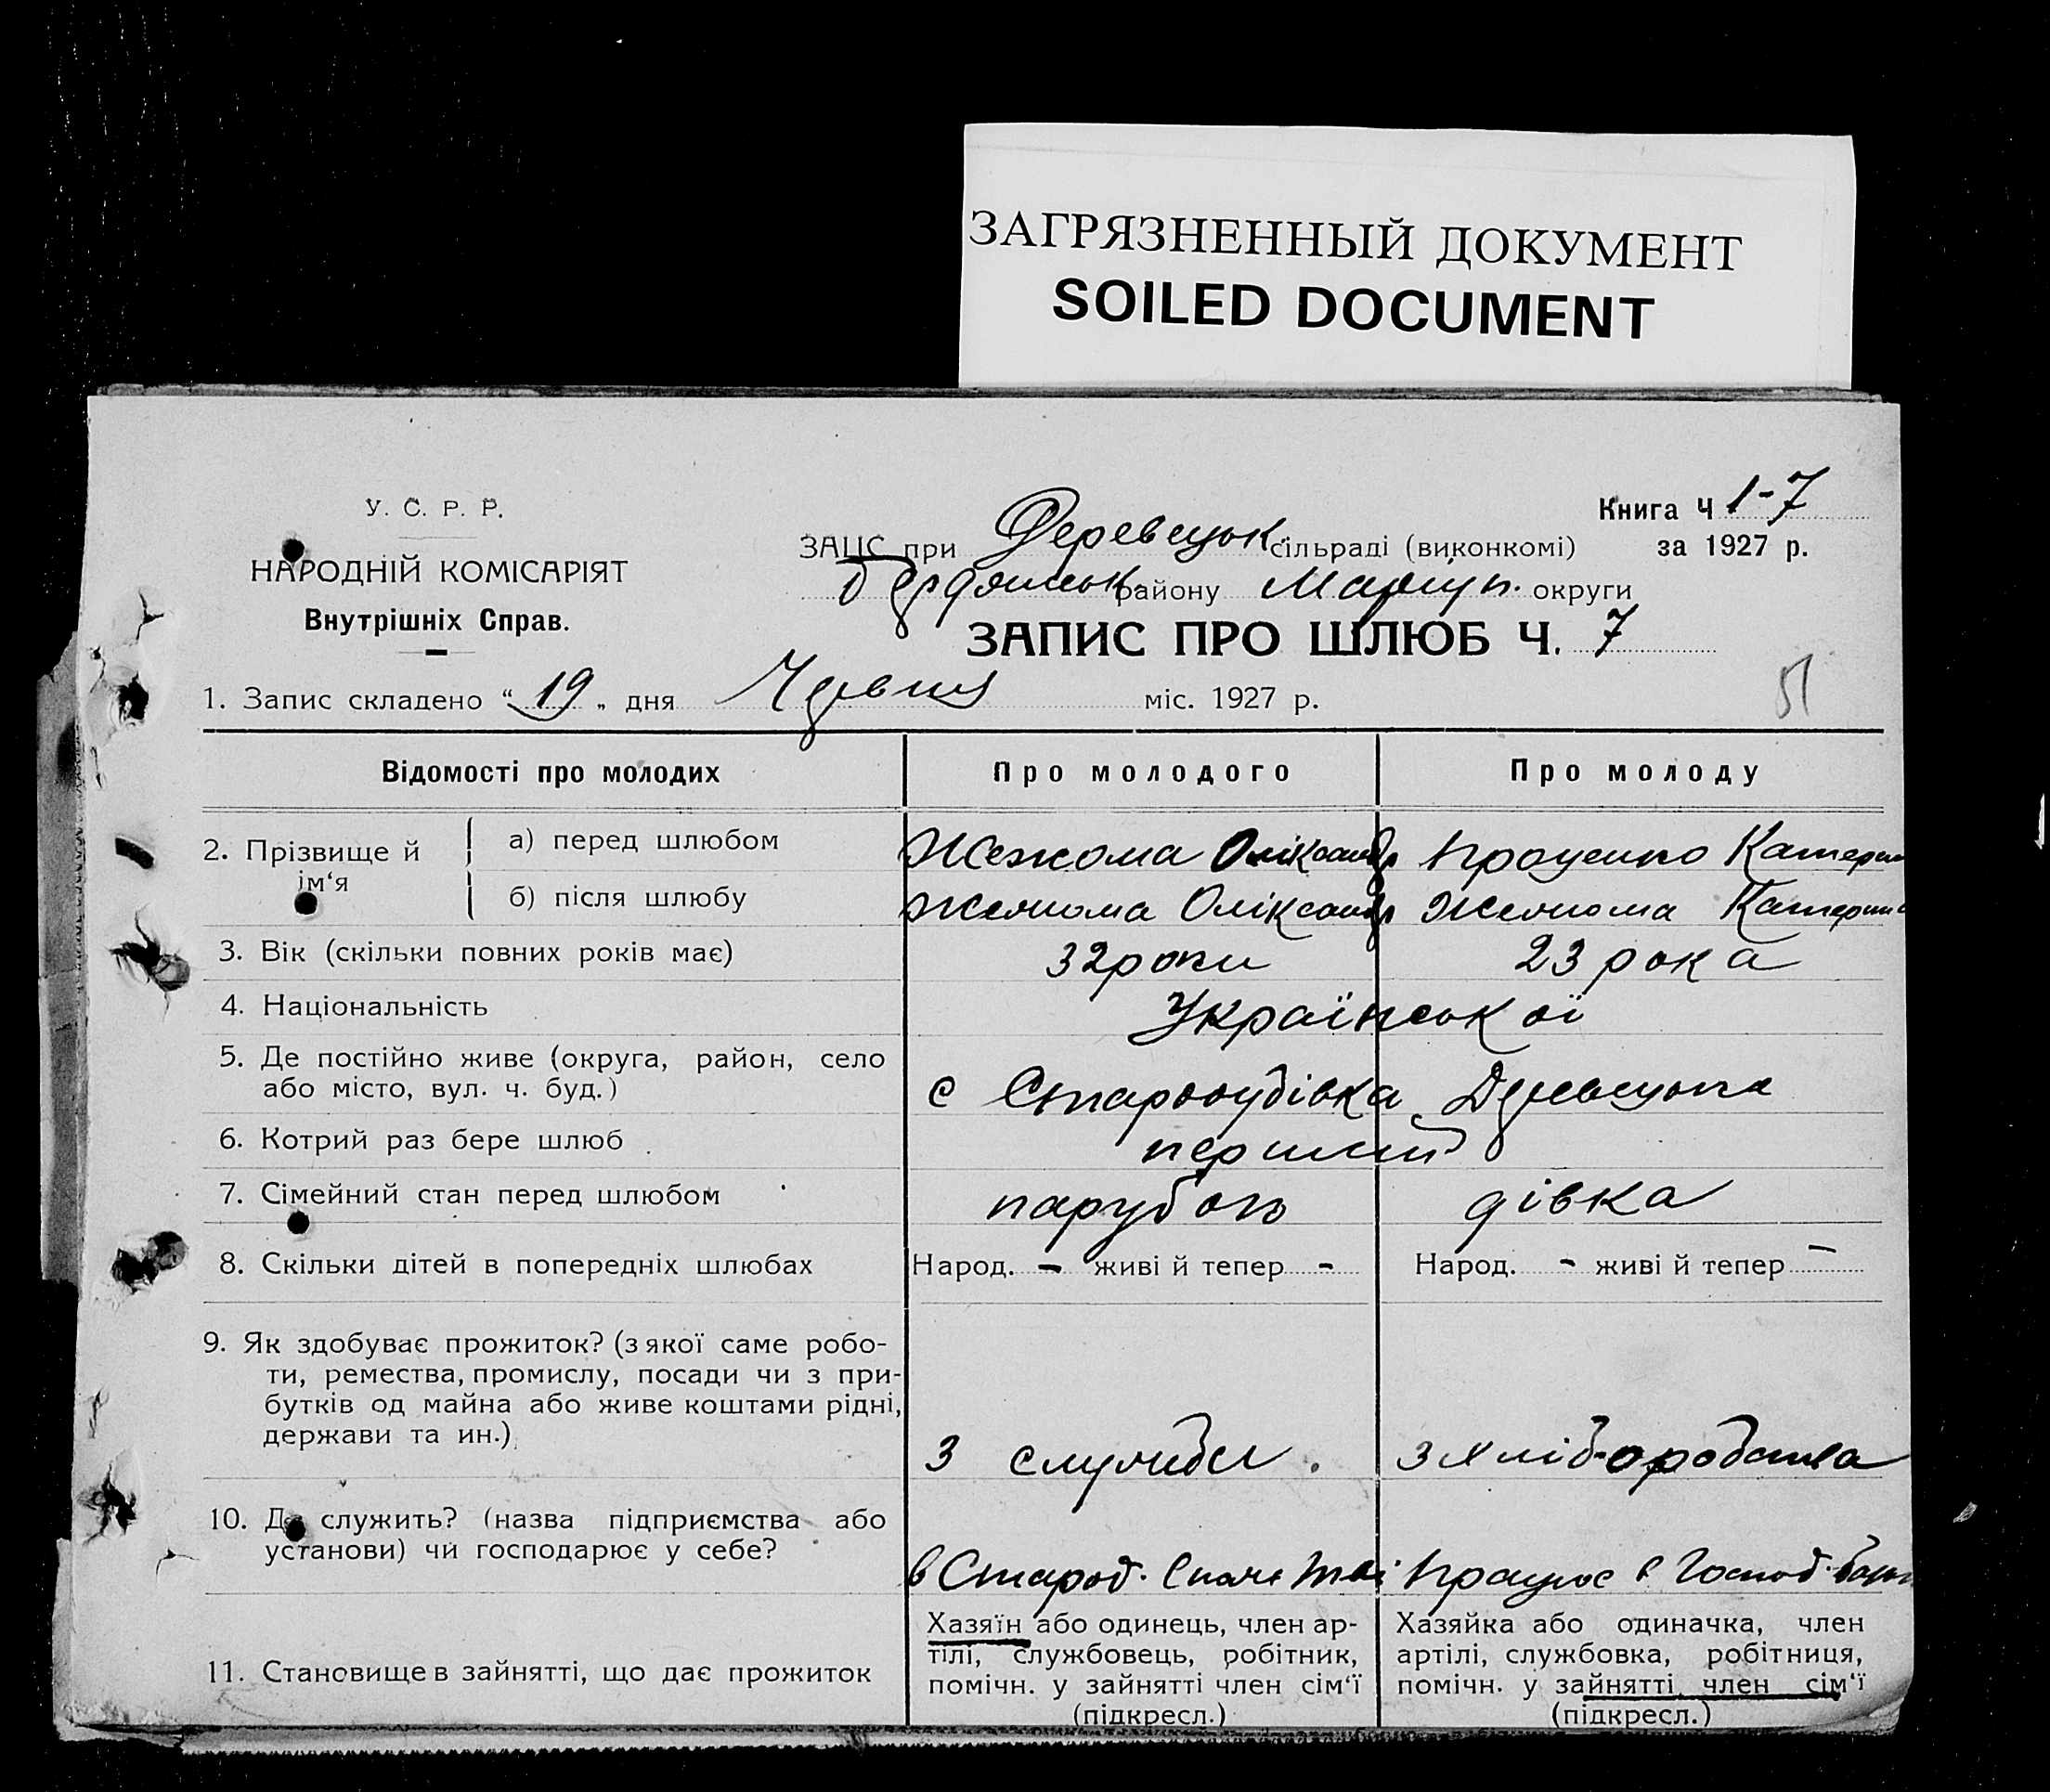 ЗАГРЯЗНЕННЫЙ ДОКУМЕНТ
SOILED DOCUMENT
У. С. Р. Р.
НАРОДНІЙ КОМІСАРІЯТ
Внутрішніх Справ.
Книга Ч 1-7
за 1927 р.
ЗАЦС при Деревецьк. сільраді (виконкомі)
району Маріуп. округи
ЗАПИС ПРО ШЛЮБ Ч. 7
51
1. Запис складено “19„ дня Червня міс. 1927 р.
Відомості про молодих Про молодого Про молоду
2. Прізвище й ім‘я
а) перед шлюбом Оліксандр Проценко Катерин
б) після шлюбу Оліксандр Катерина
3. Вік (скільки повних років має) 32 роки 23 рока
4. Національність Української
5. Де постійно живе (округа, район, село
або місто, вул. ч. буд.) с
6. Котрий раз бере шлюб перший
7. Сімейний стан перед шлюбом парубок дівка
8. Скільки дітей в попередніх шлюбах Народ. - живі й тепер - Народ. - живі й тепер -
9. Як здобуває прожиток? (з якої саме робо-
ти, ремества, промислу, посади чи з при-
бутків од майна або живе коштами рідні,
держави та ин.) З служби. З хліборобства
10. Де служить? (назва підприємства або
установи) чи господарює у себе? в Старод. Працює в Господ.
11. Становище в зайнятті, що дає прожиток
Хазяїн або одинець, член ар-
тілі, службовець, робітник,
помічн. у зайнятті член сім‘ї
(підкресл.)
Хазяйка або одиначка, член
артілі, службовка, робітниця,
помічн. у зайнятті член сім‘ї
(підкресл.)